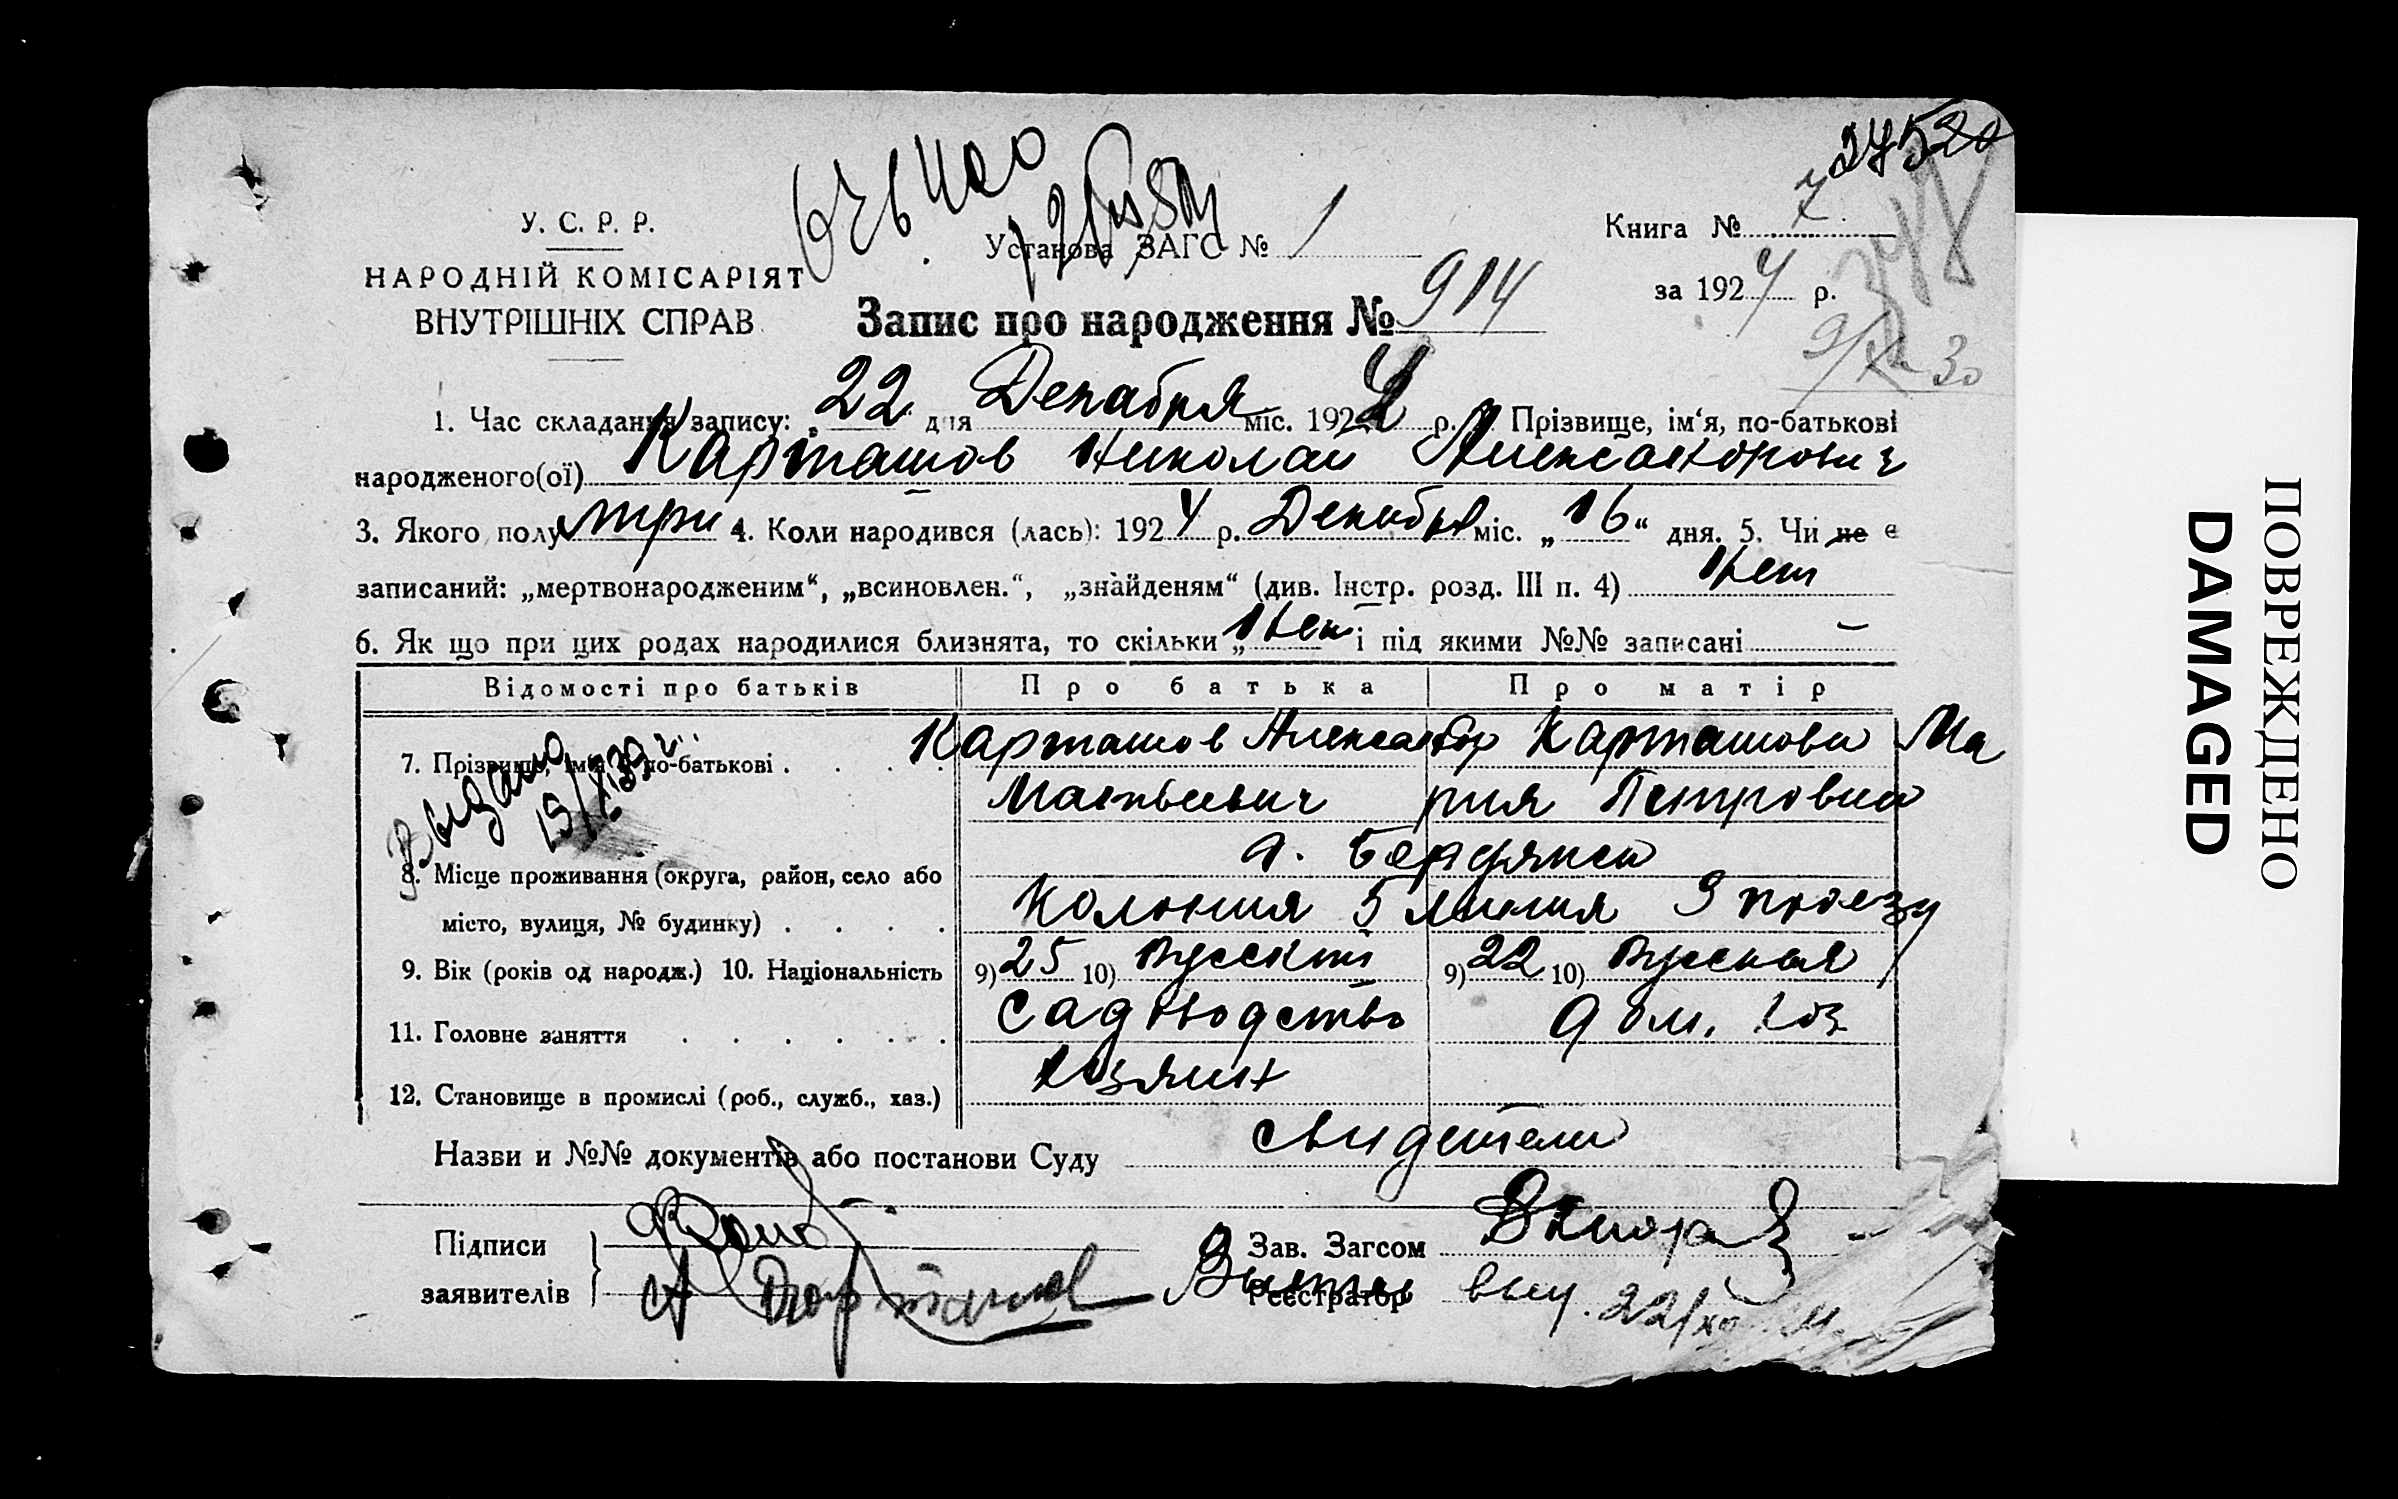 27520
У. С. Р. Р.
НАРОДНІЙ КОМІСАРІЯТ
ВНУТРІШНІХ СПРАВ
Установа ЗАГС № 1
Книга № 7
за 1924 р.
348
Запис про народження № 914
9/XII 30
1. Час складання запису: „22 дня Декабря міс. 1924 р. Прізвище, ім'я, по-батькові
народженого(ої) Карташов Николай Александрович
3. Якого полу 4. Коли народився (лась): 1924 р. Декабря міс. „16“ дня. 5. Чи не є
записаний: „мертвонародженим“, „всиновлен.“, „знайденям“ (див. Інстр. розд. III п. 4) Нет
6. Як що при цих родах народилися близнята, то скільки „Нет і під якими №№ записані —
Відомості про батьків Про батька Про матір
7. Прізвище, ім'я по-батькові . . . . Карташов Александр Карташова Ма
Матвеевич рия Петровна
Выдано
19/XI 39 г.
г. Бердянск
8. Місце проживання (округа, район, село або
місто, вулиця, № будинку) . . . . Колония 5 линия 9 проезд
9. Вік (років од народж.) 10. Національність 9) 25 10) Русский 9) 22 10) Русская
11. Головне заняття . . . . . . Садоводство дом. хоз
12. Становище в промислі (роб., служб., хаз.) хозяин
Назви и №№ документів або постанови Суду свидетели
Підписи
заявителів
А Карташов
Зав. Загсом
Реєстратор
22/XII
ПОВРЕЖДЕНО
DAMAGED